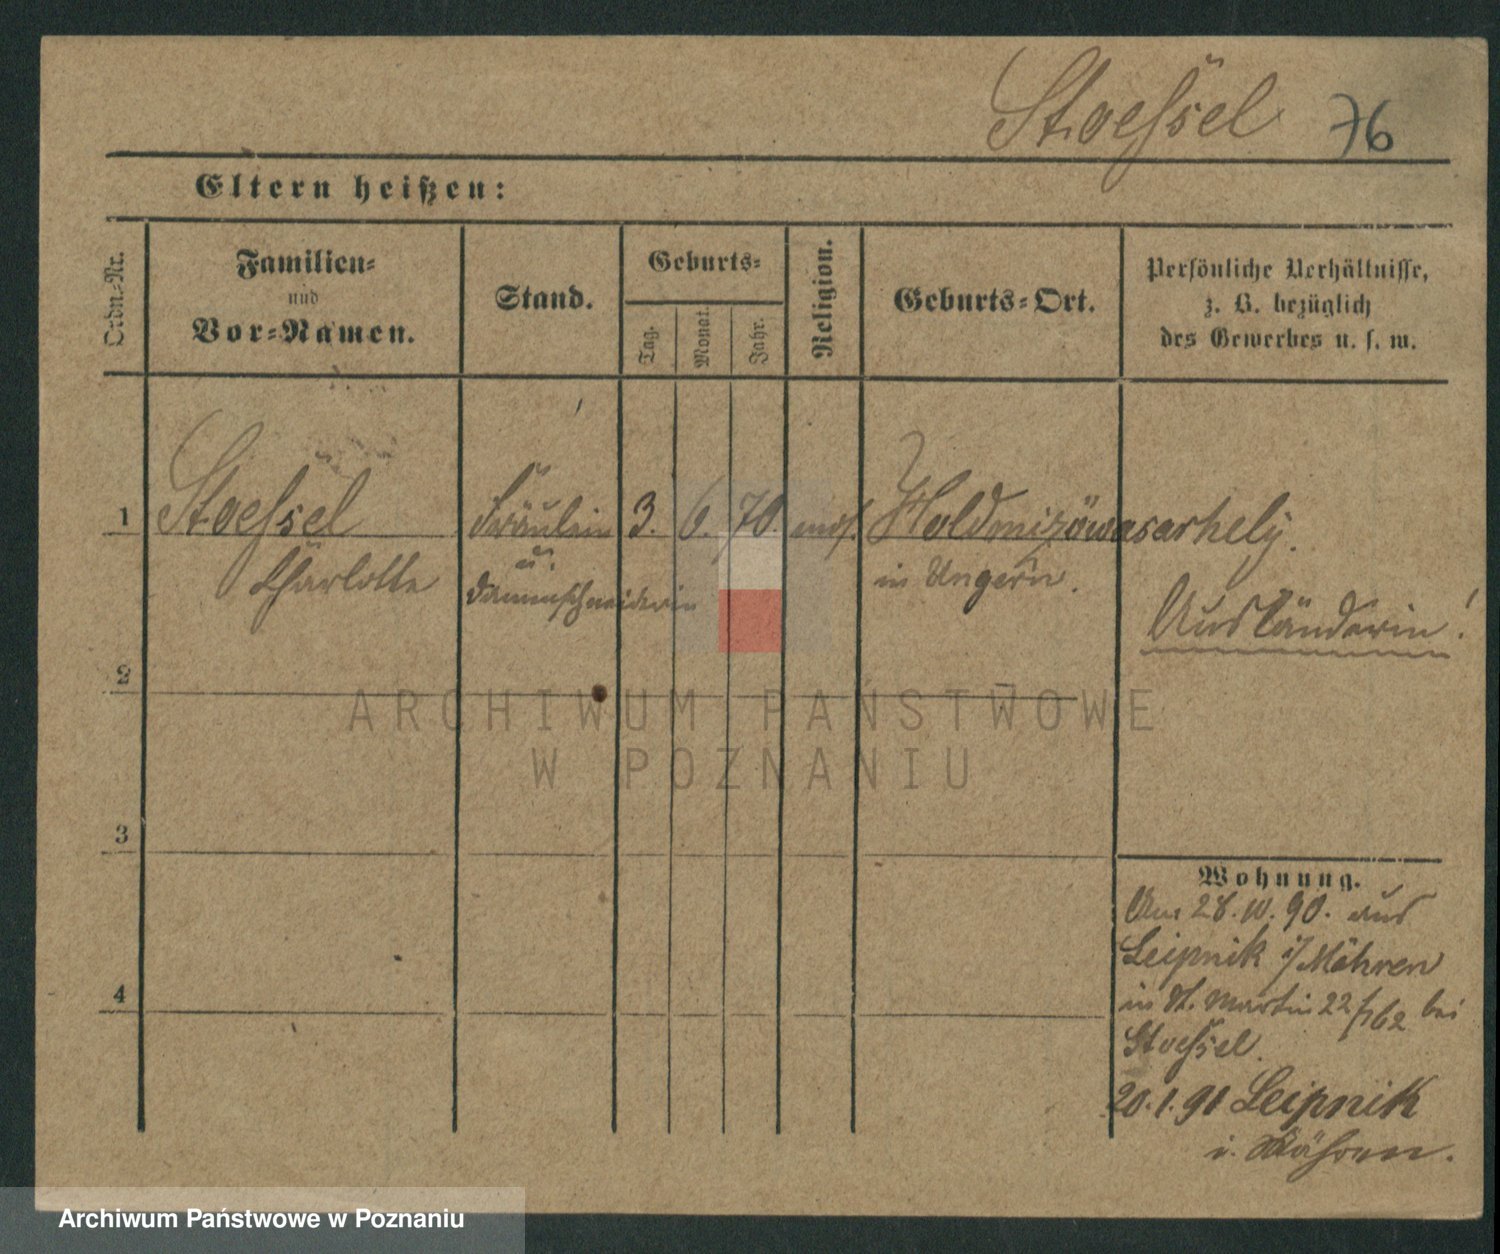 Stoessel 76
Eltern heißen:
Ordn.-Nr.
Familien-
und
Vor-Namen.
Stand.
Geburts-
Tag.
Monat.
Jahr.
Religion.
Geburts-Ort.
Persönliche Verhältnisse,
z. B. bezüglich
des Gewerbes u. s. w.
1 Stoessel Fräulein 3. 6. 70. mos. Holdmizöwasarhely.
Charlotte u. in Ungern.
Damenschneiderin
Ausländerin!
2
ARCHIWUM PAŃSTWOWE
W POZNANIU
3
4
Wohnung.
Am 28. 10. 90. aus
Leipnik i/Mähren
in St. Martin 22/762 bei
Stoessel.
20.1.91 Leipnik
i. Mähren.
Archiwum Państwowe w Poznaniu